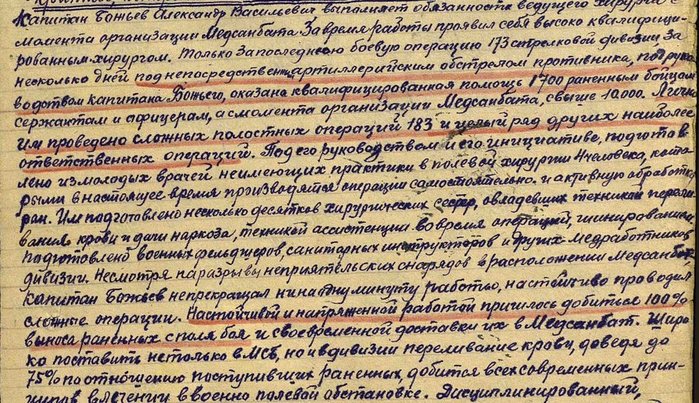 Капитан Божьев Александр Васильевич выполняет обязанности ведущего хирурга с
момента организации Медсанбата. За время работы проявил себя высоко квалифици-
рованным хирургом. Только за последнюю боевую операцию 173 стрелковой дивизии за
несколько дней под непосредственным артиллерийским обстрелом противника, под руко
водством капитана Божьего, оказана квалифицированная помощь 1700 раненным бойцам
сержантам и офицерам, а с момента организации Медсанбата, свыше 10.000. Лично
им проведено сложных полостных операций 183 и целый ряд других наиболее
ответственных операций. Под его руководством и его инициативе, подготов
лено из молодых врачей неимеющих практики в полевой хирургии 4 человека, кото
рыми в настоящее время производятся операции самостоятельно и активную обработку
ран. Им подготовлено несколько десятков хирургических сестер, овладевших техникой перели
вания крови и дачи наркоза, техникой ассистенции во время операций, шинирования
подготовлено военных фельдшеров, санитарных инструкторов и других медработников
дивизии. Несмотря на разрывы неприятельских снарядов в расположении Медсанбата
капитан Божьев непрекращал ни на одну минуту работы, настойчиво проводил
сложные операции. Настойчивой и напряженной работой пришлось добиться 100%
выноса раненных с поля боя и своевременной доставки их в Медсанбат. Широ
ко поставить не только в МСБ, но и в дивизии переливание крови, доведя до
75% по отношению поступивших раненных, добился всех современных прин-
ципов в лечении в военно полевой обстановке. Дисциплинированный,